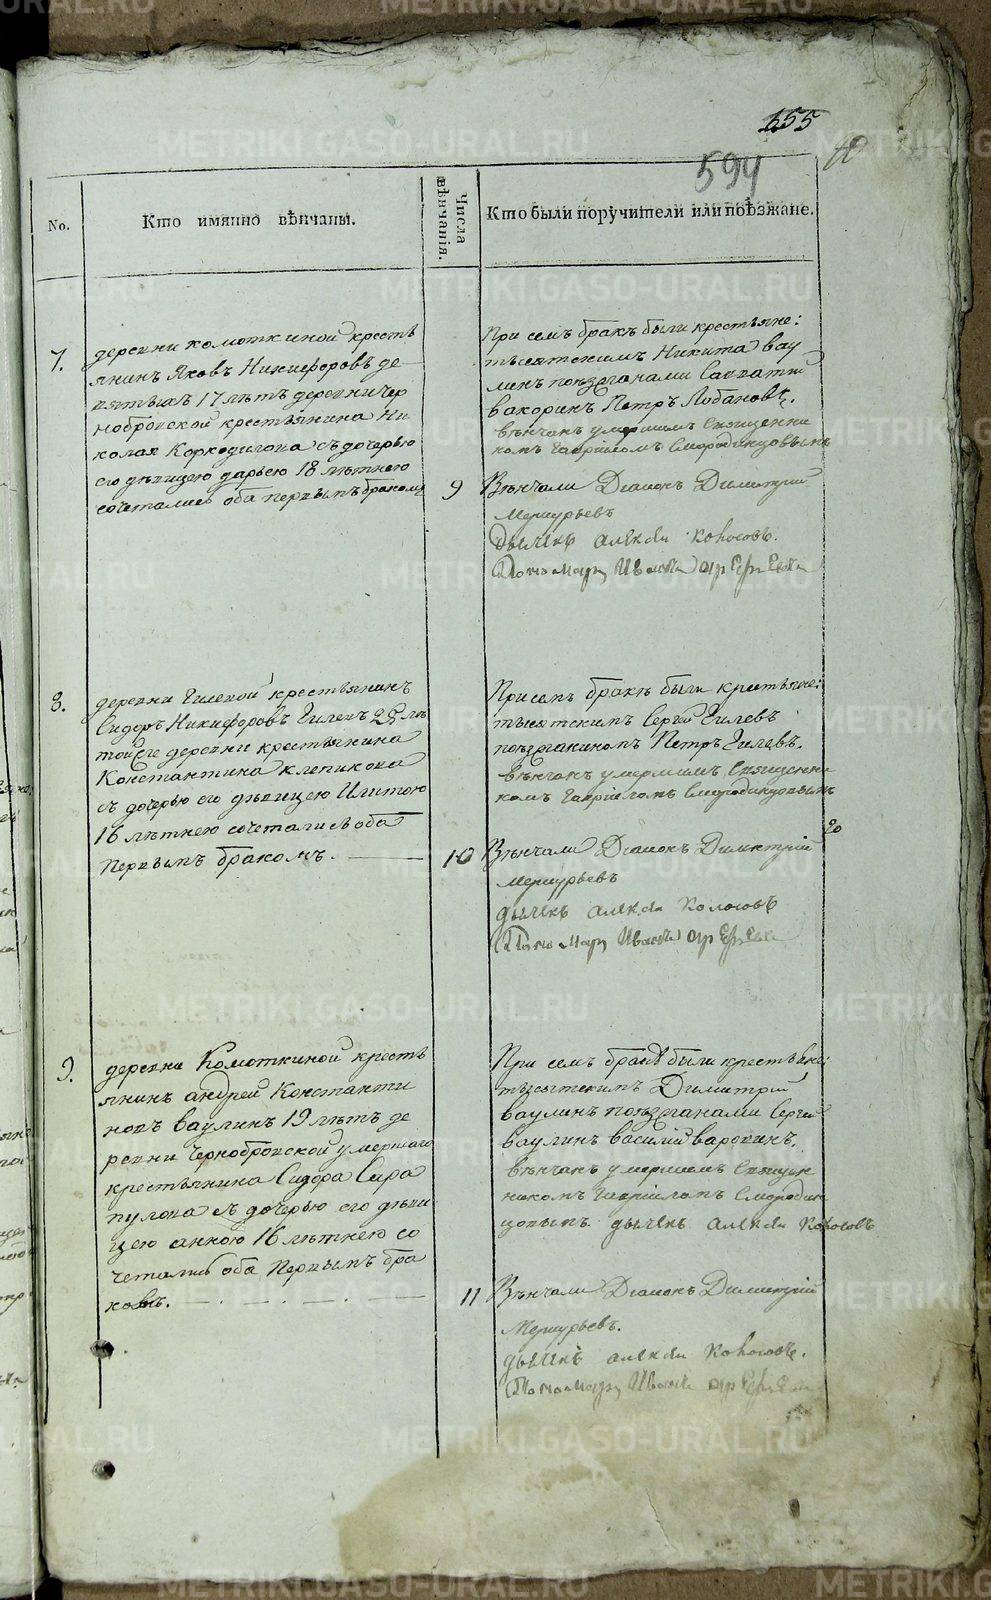 655
594
10
No.
Кто имянно вѣнчаны.
Числа вѣнчанія.
Кто были поручители или поѣзжане.
7.
деревни комоткиной кресть
янинъ Яковъ Никифоровъ де
17 лѣтъ деревни Чер
нобровской крестьянина Ни
колая Коркодинова съ дочерью
его дѣвицею дарьею 18 лѣтнею
сочетались оба первымъ бракомъ
9
При семъ бракѣ были крестьяне:
тысятскимъ Никита вау
линъ поѣзжанами
вакоринъ Петръ Лобановъ.
вѣнчанъ умершимъ Священни
комъ Гавріиломъ Смородинцовымъ
Вѣнчали Діаконъ Димитрій
Меркурьевъ
дьячекъ алексѣй Колосовъ.
Пономарь Иванъ
8.
деревни Гилевой крестьянинъ
Сидоръ Никифоровъ Гилевъ 25 лѣ
той же деревни крестьянина
Константина клепикова
съ дочерью его дѣвицею Улитою
16 лѣтнею сочетались оба
первымъ бракомъ.
10
При семъ бракѣ были крестьяне:
тысятскимъ Сергей Гилевъ
поѣзжаниномъ Петръ Гилевъ.
вѣнчанъ умершимъ Священни
комъ Гавріиломъ Смородинцовымъ
Вѣнчали Діаконъ Димитрій
Меркурьевъ
дьячекъ алексѣй Колосовъ
Пономарь Иванъ
9.
деревни Комоткиной кресть
янинъ андрей Константи
новъ ваулинъ 19 лѣтъ де
ревни Чернобровской умершаго
крестьянина Сидора Сара
пулова съ дочерью его дѣви
цею анною 16 лѣтнею со
четались оба Первымъ бра
комъ.
11
При семъ бракѣ были крестьяне:
тысятскимъ Димитрій
ваулинъ поѣзжанами Сергей
ваулинъ василій
вѣнчанъ умершимъ Священ
никомъ Гавріиломъ Смородин
цовымъ дьячекъ алексѣй Колосовъ
Вѣнчали Діаконъ Димитрій
Меркурьевъ.
дьячекъ алексѣй Колосовъ.
Пономарь Иванъ
METRIKI.GASO-URAL.RU